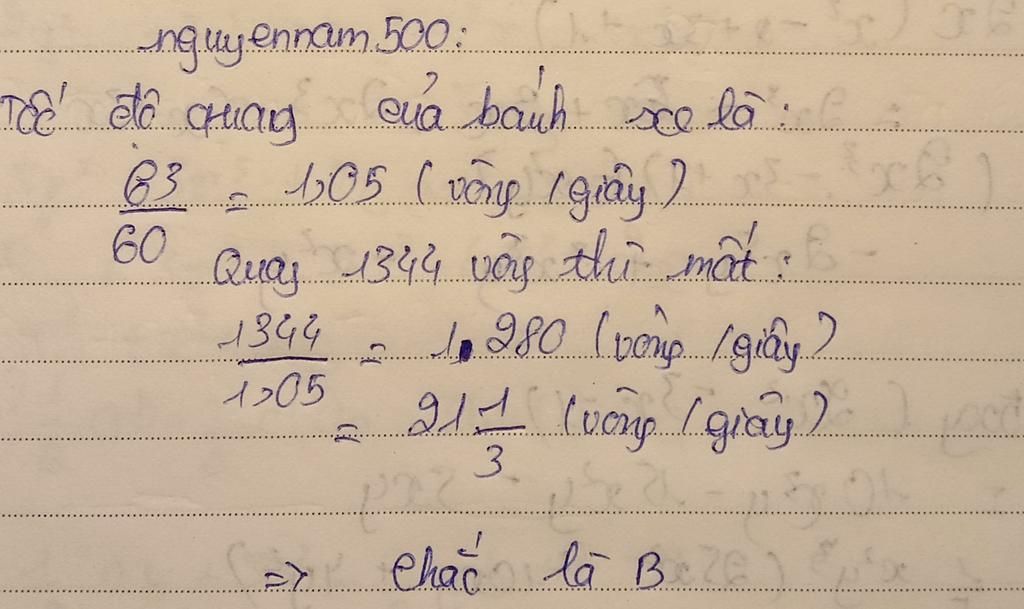 nguyennam500:
Tốc độ quay của bánh xe là:
63/60 = 1,05 (vòng/giây)
Quay 1344 vòng thì mất:
1344/1,05 = 1.280 (vòng/giây)
= 21 1/3 (vòng/giây)
=> chắc là B